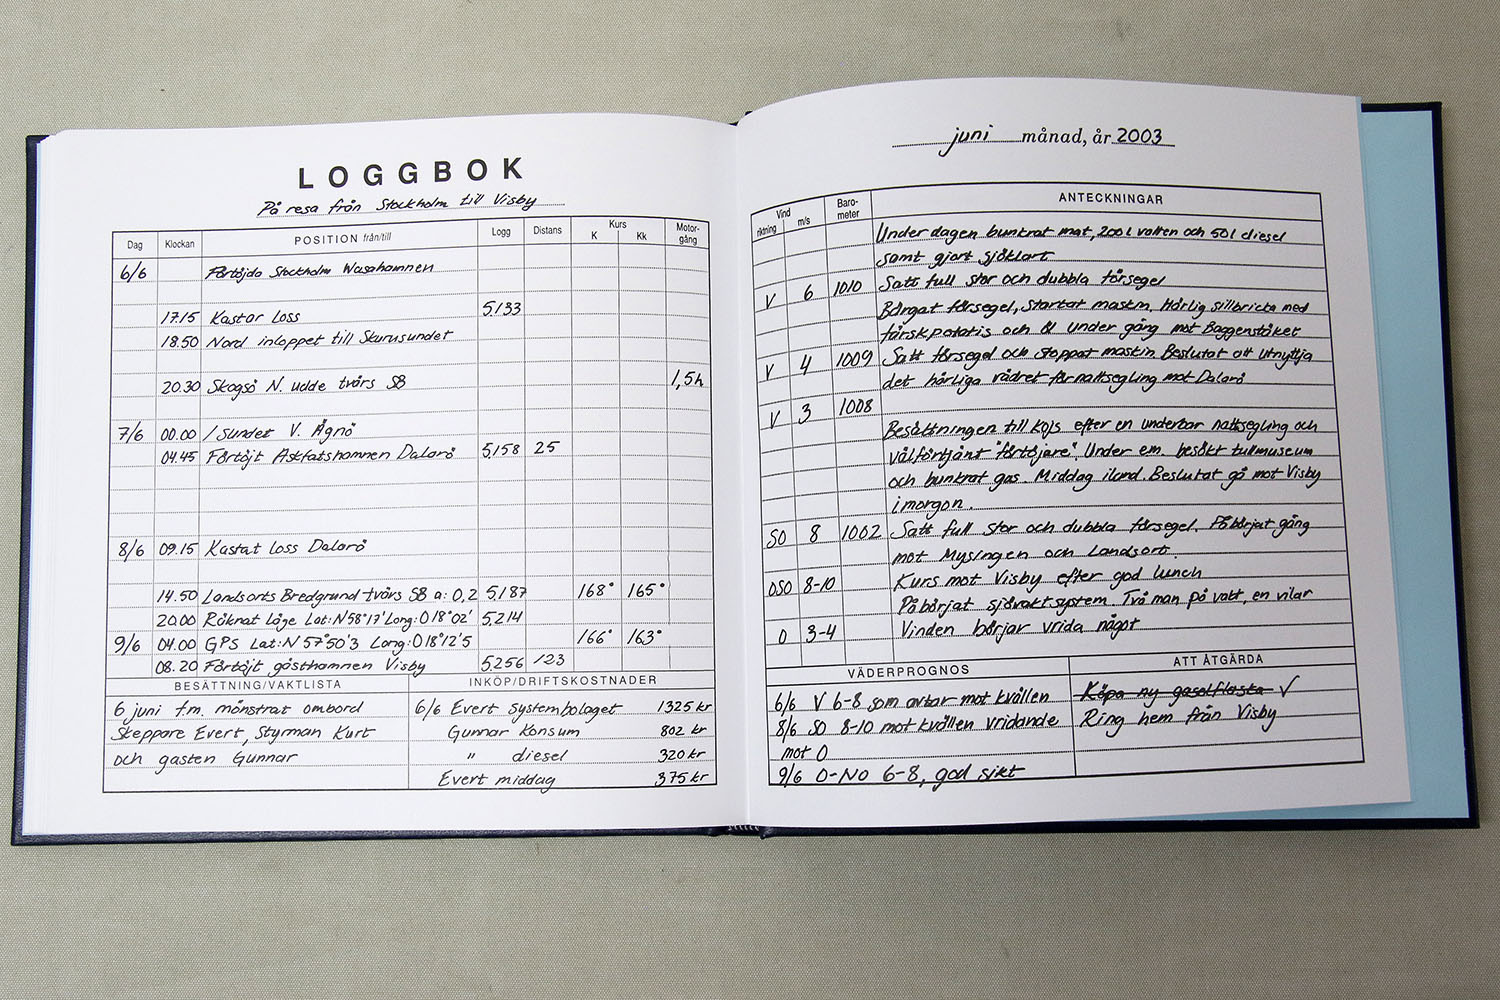 LOGGBOK
På resa från Stockholm till Visby
Dag Klockan POSITION från/till Logg Distans Kurs K Kk Motor-gång
6/6 Förtöjda Stockholm Wasahamnen
17.15 Kastar Loss 5,133
18.50 Nord inloppet till Skurusundet
20.30 Skogsö N. udde tvärs SB 1,5h
7/6 00.00 I sundet V. Ägnö
04.45 Förtöjt Askfatshamnen Dalarö 5,158 25
8/6 09.15 Kastat loss Dalarö
14.50 Landsorts Bredgrund tvärs SB a: 0,2 5,187 168° 165°
20.00 Räknat läge Lat: N58°17' Long: O18°02' 5,214
9/6 04.00 GPS Lat: N 57°50'3 Long: O18°12'5 166° 163°
08.20 Förtöjt gästhamnen Visby 5,256 123
BESÄTTNING/VAKTLISTA
6 juni f.m. mönstrat ombord
Skeppare Evert, Styrman Kurt
och gasten Gunnar
INKÖP/DRIFTSKOSTNADER
6/6 Evert systembolaget 1325 kr
Gunnar Konsum 802 kr
" diesel 320 kr
Evert middag 375 kr
juni månad, år 2003
Vind riktning m/s Baro-meter ANTECKNINGAR
Under dagen bunkrat mat, 200 l vatten och 50 l diesel
samt gjort sjöklart
V 6 1010 Satt full stor och dubbla försegel
Bärgat försegel, startat maskin. Härlig sillbricka med
färskpotatis och öl under gång mot Baggenstäket
V 4 1009 Satt försegel och stoppat maskin Beslutat att utnyttja
det härliga vädret för nattsegling mot Dalarö
V 3 1008
Besättningen till kojs efter en underbar nattsegling och
välförtjänt "förtöjare". Under em. besökt tullmuseum
och bunkrat gas. Middag iland. Beslutat gå mot Visby
i morgon.
SO 8 1002 Satt full stor och dubbla försegel. Påbörjat gång
mot Mysingen och Landsort.
OSO 8-10 Kurs mot Visby efter god lunch
Påbörjat sjövaktsystem. Två man på vakt, en vilar
O 3-4 Vinden börjar vrida något
VÄDERPROGNOS
6/6 V 6-8 som avtar mot kvällen
8/6 SO 8-10 mot kvällen vridande
mot O
9/6 O-NO 6-8, god sikt
ATT ÅTGÄRDA
Köpa ny gasolflaska ✓
Ring hem från Visby